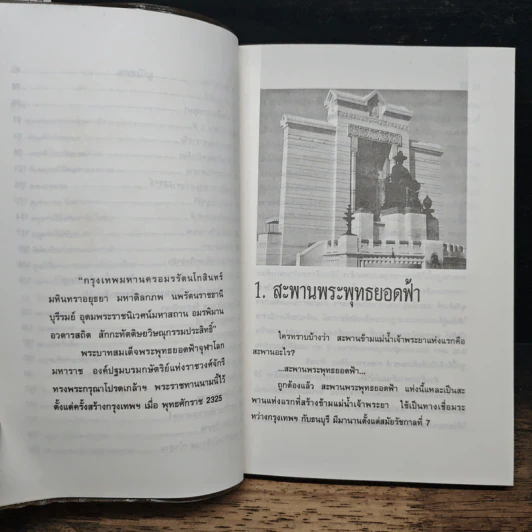 "กรุงเทพมหานครอมรรัตนโกสินทร์
มหินทราอยุธยา มหาดิลกภพ นพรัตนราชธานี
บุรีรมย์ อุดมพระราชนิเวศน์มหาสถาน อมรพิมาน
อวตารสถิต สักกะทัตติยวิษณุกรรมประสิทธิ์"
พระบาทสมเด็จพระพุทธยอดฟ้าจุฬาโลก
มหาราช องค์ปฐมบรมกษัตริย์แห่งราชวงศ์จักรี
ทรงพระกรุณาโปรดเกล้าฯ พระราชทานนามนี้ไว้
ตั้งแต่ครั้งสร้างกรุงเทพฯ เมื่อ พุทธศักราช 2325
1. สะพานพระพุทธยอดฟ้า
ใครทราบบ้างว่า สะพานข้ามแม่น้ำเจ้าพระยาแห่งแรกคือ
สะพานอะไร?
...สะพานพระพุทธยอดฟ้า...
ถูกต้องแล้ว สะพานพระพุทธยอดฟ้า แห่งนี้แหละเป็นสะ
พานแห่งแรกที่สร้างข้ามแม่น้ำเจ้าพระยา ใช้เป็นทางเชื่อมระ
หว่างกรุงเทพฯ กับธนบุรี มีมานานตั้งแต่สมัยรัชกาลที่ 7